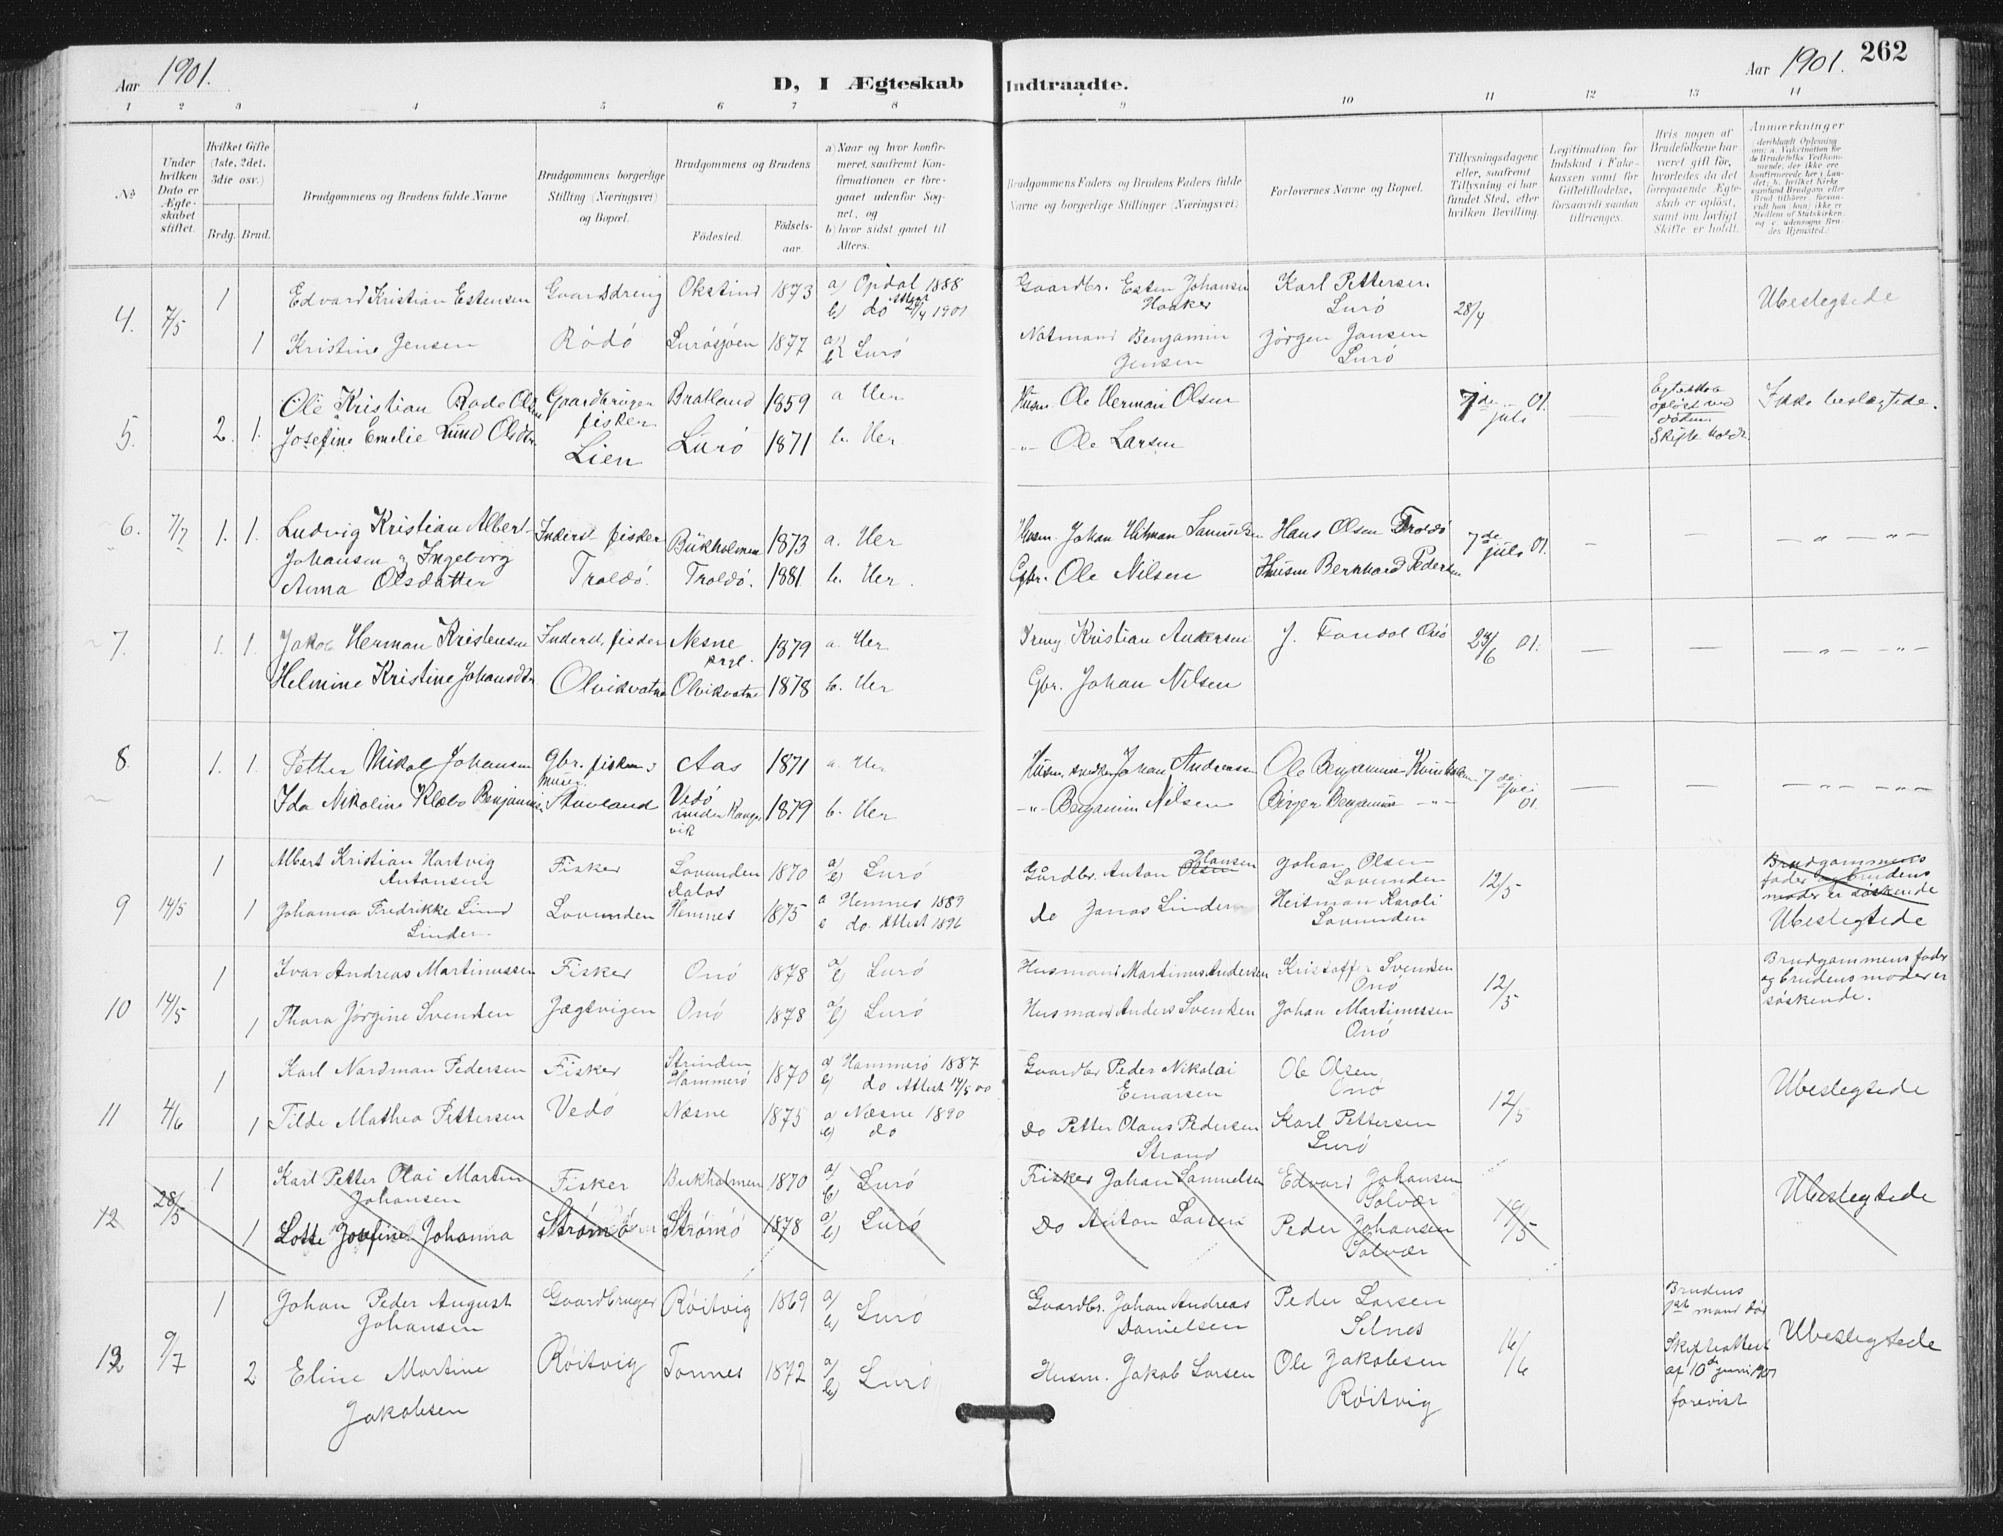 Aar 1901.
D, I Ægteskab Indtraadte.
Aar 1901. 262
1 2 3 4 5 6 7 8 9 10 11 12 13 14
No
Under hvilken Dato er Ægteskabet stiftet.
Hvilket Gifte (1ste, 2det, 3die osv.)
Brdg. Brud.
Brudgommens og Brudens fulde Navne
Brudgommens borgerlige Stilling (Næringsvei) og Bopæl.
Brudgommens og Brudens
Fødested. Fødselsaar.
a) Naar og hvor konfirmeret, saafremt Konfirmationen er foregaaet udenfor Sognet, og
b) hvor sidst gaaet til Alters.
Brudgommens Faders og Brudens Faders fulde Navne og borgerlige Stillinger (Næringsvei)
Forlovernes Navne og Bopæl.
Tillysningsdagene eller, saafremt Tillysning ei har fundet Sted, efter hvilken Bevilling.
Legitimation for Indskud i Enkekassen samt for Giftetilladelse, forsaavidt saadan tiltrænges.
Hvis nogen af Brudefolkene har været gift før, hvorledes da det foregaaende Ægteskab er opløst, samt om lovligt Skifte er holdt.
Anmærkninger
4. 7/5 1 Edvard Kristian Estensen Gaardsdreng Okstind 1873 a) Opdal 1888 Gaardbr. Esten Johansen Karl Pettersen 28/4 Ubeslegtede
b) do Attest 21/4 1901 Haaker Lurö
1 Kristine Jensen Rödö Lurösjøen 1877 a) b) Lurö Notmand Benjamin Jensen Jörgen Jansen Lurö
5. 2. 1. Ole Kristian Rode Olsen Gaardbruger fisker Bratland 1859 a Her Husm. Ole Herman Olsen 7de juli 01. — Egteskab opløst ved döden Skifte holdt. Ikke beslægtede.
Josefine Emelie Lund Olsdtr Lien Lurö 1871 b. Her -"- Ole Larsen
6. 7/7 1. 1. Ludvig Kristian Albert Inderst fisker Bukholmen 1873 a. Her Husm. Johan Hitman Samuelsen Hans Olsen Troldö 7de juli 01. — — — " — " —
Johansen og Ingeborg
Anna Olsdatter Troldö. Troldö. 1881 b. Her. Gbr. Ole Nilsen Husm Bernhard Pedersen
7. 1. 1. Jakob Herman Kristensen Inderst, fisker Nesne prgl. 1879 a. Her Kristian Andersen J. Fondal Onö 23/6 01. — — — " — " —
Helmine Kristine Johansdtr Olvikvatne Olvikvatne 1878 b. Her Gbr. Johan Nilsen
8. 1. 1. Petter Nikol Johansen Gbr. fisker 1871 a. Her Husm. snedker Johan Andreassen Ole Benjaminsen 7de juli 01. — — — " — " —
Aas
Ida Nikoline Klæbo Benjaminsen Stuvland Vedö under Rangsvik 1879 b. Her -"- Benjamin Nilsen Birger Benjaminsen -"-
9 14/5 1 Albert Kristian Hartvig Antonsen Fisker Lovunden 1870 a) b) Lurö Gårdbr. Anton Olsen Hansen Johan Olsen Lovunden 12/5 Brudgommens fader og brudens moder er söskende
1 Johanna Fredrikke Lind Linder Lovunden Dalos Hemnes 1875 a Hemnes 1889 do Attest 1896 do Jonas Linder Heitman Karoli Lovunden Ubeslegtede
10 14/5 1 Ivar Andreas Martinussen Fisker Onö 1878 a/b) Lurö Husmand Martinus Andersen Kristoffer Svendsen Onö 12/5 Brudgommens fader og brudens moder er söskende.
1 Thora Jørgine Svendsen Jægtvigen Onö 1878 a/b) Lurö Husmand Anders Svensken Johan Martinussen Onö
11 4/6 1 Karl Nordman Pedersen Fisker Strinden Hammerö 1870 a) Hammerö 1887 b) do Attest 17/5 00 Gaardbr Peder Nikolai Einarsen Ole Olsen Onö 12/5 Ubeslegtede
1 Tilde Mathea Pettersen Vedö Næsne 1875 a) Næsne 1890 b) do Do Petter Olaus Pedersen Strand Karl Pettersen Lurö
12 28/5 1 Karl Petter Olai Martin Johansen Fisker Bukholmen 1870 a/b) Lurö Fisker Johan Samuelsen Edvard Johansen Solvær 19/5 Ubeslegtede
1 Lotte Josefine Johanna Strømö Strömö 1878 a/b) Lurö Do Anton Larsen Peder Johansen Solvær
13 9/7 1 Johan Peder August Johansen Gaardbruger Røitvig 1869 a/b) Lurö Gaardbr. Johan Andreas Danielsen Peder Larsen Selnes 16/6 Brudens 1ste mand död Skifteattest af 10de juni 1901 forevist Ubeslegtede
2 Eline Martine Jakobsen Røitvig Tonnes 1872 a/b) Lurö Husm. Jakob Larsen Ole Jakobsen Røitvig